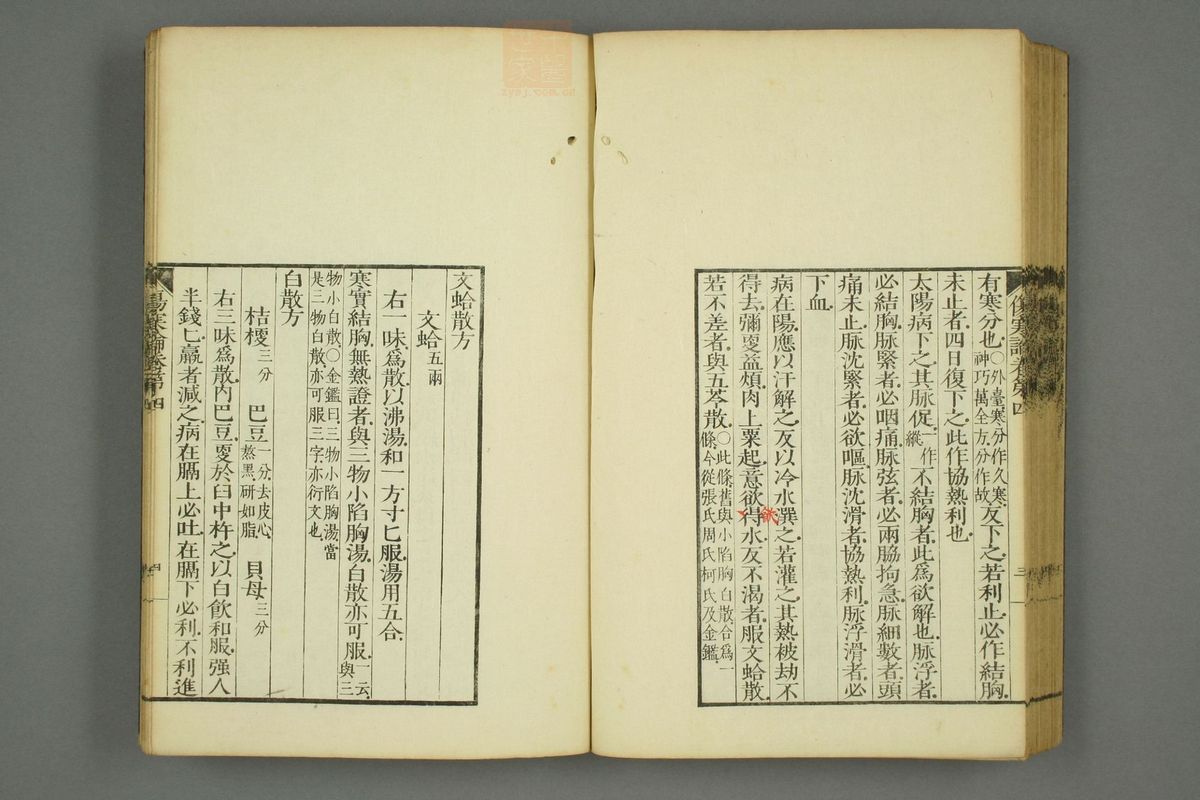 有寒分也。○外臺寒分作久寒。神巧萬全方分作故反下之若利止必作結胸
未止者四日復下之此作協熱利也
太陽病下之其脉促一作縱不結胸者此爲欲解也脉浮者
必結胸脉緊者必咽痛脉弦者必兩脇拘急脉細數者頭
痛未止脉沈緊者必欲嘔脉沈滑者協熱利脉浮滑者必
下血
病在陽應以汗解之反以冷水潠之若灌之其熱被劫不
得去彌更益煩肉上粟起意欲得水反不渴者服文蛤散
若不差者與五苓散○此條舊與小陷胸白散合爲一條今從張氏周氏柯氏及金鑑
傷寒論卷第四
三
文蛤散方
文蛤五兩
右一味爲散以沸湯和一方寸匕服湯用五合
寒實結胸無熱證者與三物小陷胸湯白散亦可服一云與三
物小白散○金鑑曰三物小陷胸湯當是三物白散亦可服三字亦衍文也
白散方
桔梗三分 巴豆一分去皮心熬黑研如脂 貝母三分
右三味爲散内巴豆更於臼中杵之以白飲和服强人
半錢匕羸者減之病在膈上必吐在膈下必利不利進
傷寒論卷第四
四
zysj.com.cn